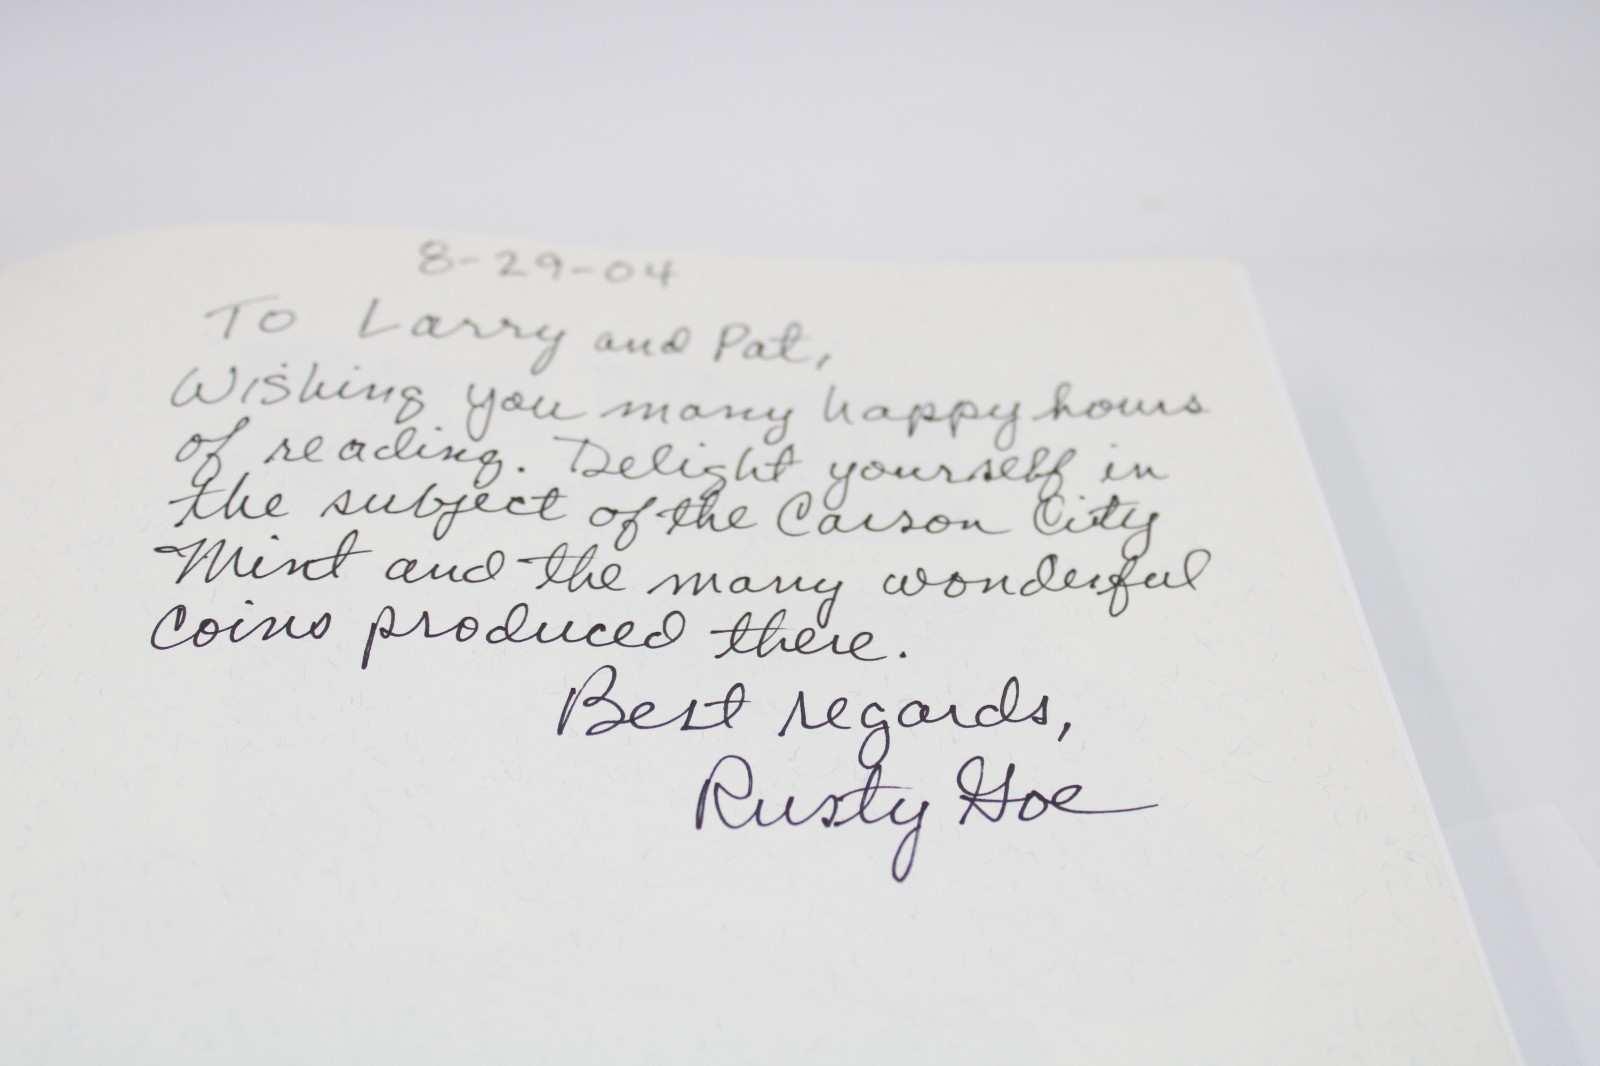 8-29-04
To Larry and Pat,
Wishing you many happy hours
of reading. Delight yourself in
the subject of the Carson City
Mint and the many wonderful
coins produced there.
Best regards,
Rusty Goe